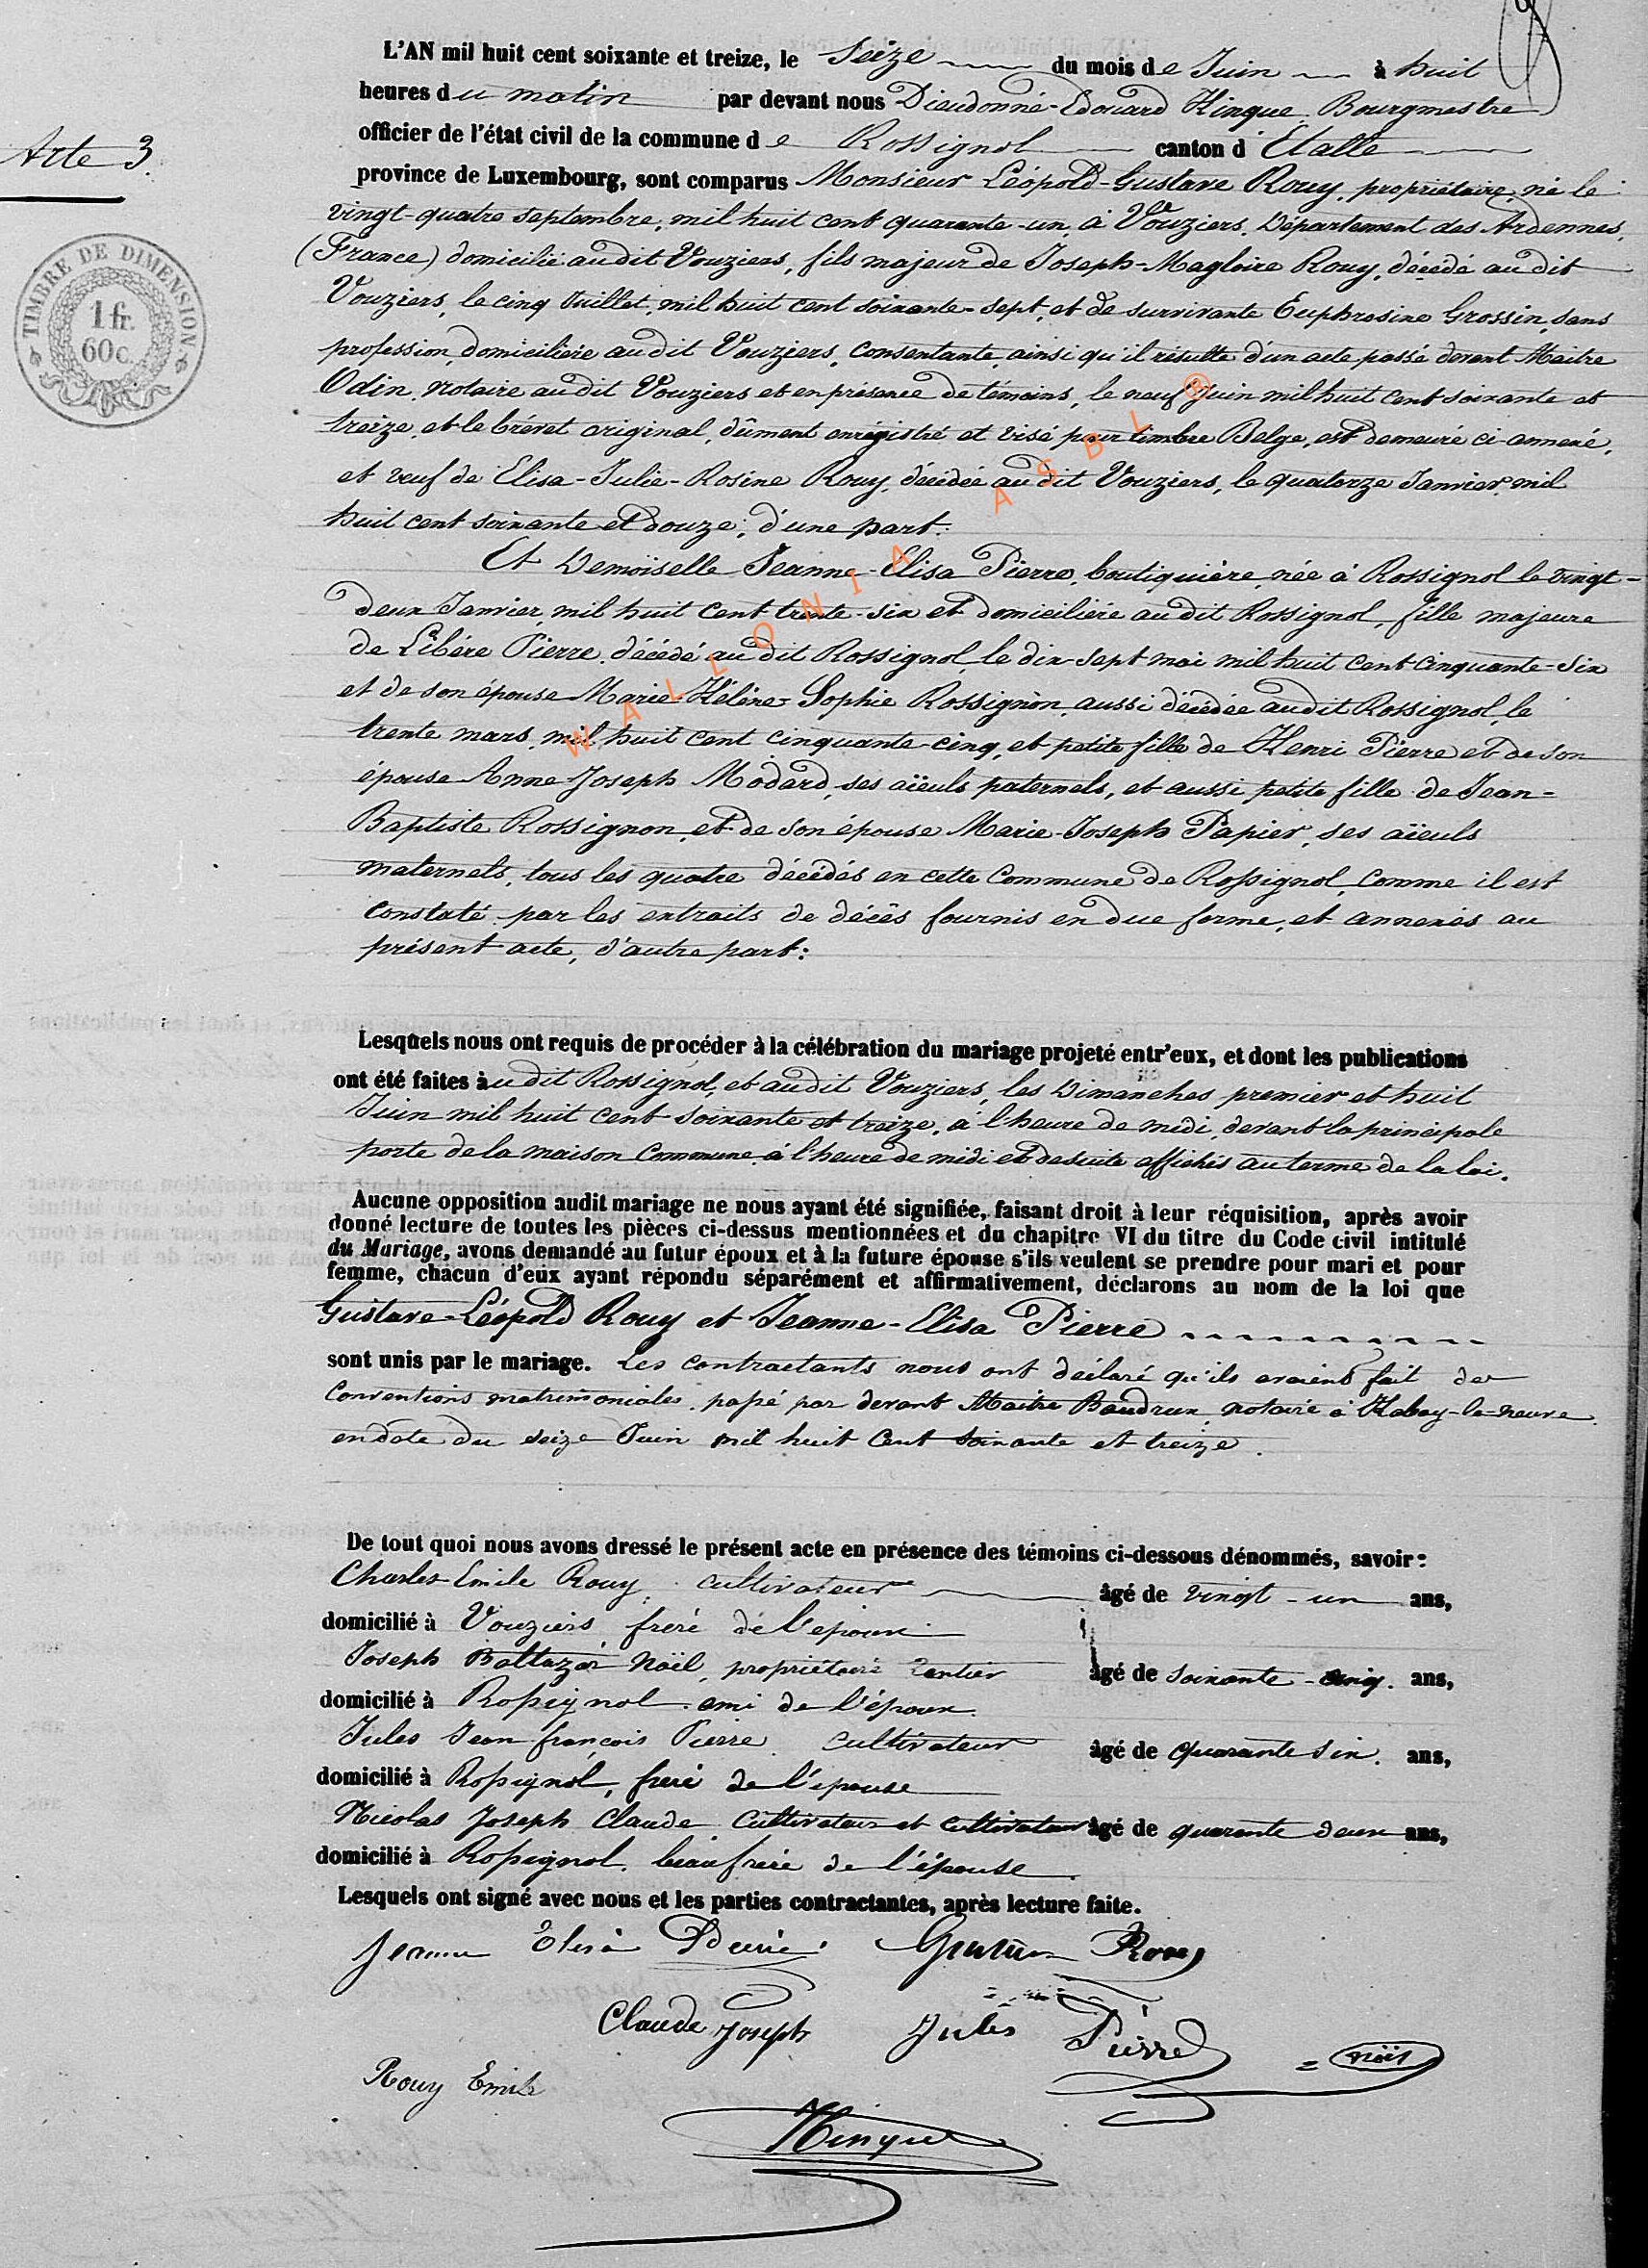 L'AN mil huit cent soixante et treize, le Seize du mois de Juin à huit
heures du matin par devant nous Dieudonné-Edouard Hinque, Bourgmestre
officier de l'état civil de la commune de Rossignol canton d'Etalle
Acte 3.
province de Luxembourg, sont comparus Monsieur Léopold-Gustave Rouy, propriétaire, né le
vingt-quatre septembre, mil huit cent quarante-un, à Vouziers, Département des Ardennes,
(France) domicilié audit Vouziers, fils majeur de Joseph-Magloire Rouy, décédé au dit
Vouziers, le cinq Juillet, mil huit cent soixante-sept, et de survivante Euphrosine Grossin, sans
profession, domiciliée audit Vouziers, consentante, ainsi qu'il résulte d'un acte passé devant Maitre
Odin, notaire audit Vouziers et en présence de témoins, le neuf Juin mil huit cent soixante et
treize, et le brévet original, dûment enrégistré et visé pour timbre Belge, est demeuré ci-annexé,
et veuf de Elisa-Julie-Rosine Rouy, décédée au dit Vouziers, le quatorze Janvier, mil
huit cent soixante et douze; d'une part:
Et Demoiselle Jeanne-Elisa Pierre, boutiquière, née à Rossignol le vingt-
deux Janvier, mil huit cent trente-six et domiciliée audit Rossignol, fille majeure
de Libére Pierre, décédé au dit Rossignol, le dix-sept mai mil huit cent cinquante-six
et de son épouse Marie-Hélène-Sophie Rossignon, aussi décédée audit Rossignol, le
trente mars, mil huit cent cinquante-cinq, et petite fille de Henri Pierre et de son
épouse Anne-Joseph Modard, ses aïeuls paternels, et aussi petite fille de Jean-
Baptiste Rossignon, et de son épouse Marie-Joseph Papier, ses aïeuls
maternels, tous les quatre décédés en cette Commune de Rossignol, comme il est
constaté par les extraits de décès fournis en due forme, et annexés au
présent acte, d'autre part:
TIMBRE DE DIMENSION
1 fr.
60 c.
WALLONIA ASBL ®
Lesquels nous ont requis de procéder à la célébration du mariage projeté entr'eux, et dont les publications
ont été faites audit Rossignol, et audit Vouziers, les Dimanches premier et huit
Juin mil huit cent soixante et treize, à l'heure de midi, devant la principale
porte de la maison Commune à l'heure de midi et de suite affichés au terme de la loi.
Aucune opposition audit mariage ne nous ayant été signifiée, faisant droit à leur réquisition, après avoir
donné lecture de toutes les pièces ci-dessus mentionnées et du chapitre VI du titre du Code civil intitulé
du Mariage, avons demandé au futur époux et à la future épouse s'ils veulent se prendre pour mari et pour
femme, chacun d'eux ayant répondu séparément et affirmativement, déclarons au nom de la loi que
Gustave-Léopold Rouy et Jeanne-Elisa Pierre
sont unis par le mariage. Les contractants nous ont déclaré qu'ils avaient fait des
Conventions matrimoniales, passé par devant Maitre Baudrux, notaire à Habay-la-neuve
en date du seize Juin mil huit Cent soixante et treize.
De tout quoi nous avons dressé le présent acte en présence des témoins ci-dessous dénommés, savoir:
Charles Emile Rouy, cultivateur âgé de vingt-un ans,
domicilié à Vouziers frère de l'epoux
Joseph Baltazar Noël, propriétaire rentier âgé de soixante-cinq. ans,
domicilié à Rossignol. ami de l'époux.
Jules Jean françois Pierre cultivateur âgé de quarante six. ans,
domicilié à Rossignol, frère de l'épouse
Nicolas Joseph Claude Cultivateur et cultivateur âgé de quarante deux ans,
domicilié à Rossignol. beaufrère de l'épouse
Lesquels ont signé avec nous et les parties contractantes, après lecture faite.
Jeanne Elisa Pierre Gustave Rouy
Claude Joseph Jules Pierre
Noël
Rouy Emile
Hinque